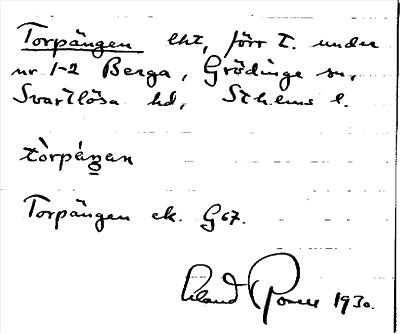 Torpängen lht, förr t. under
nr 1-2 Berga, Grödinge sn,
Svartlösa hd, Sthlms l.
tòrpäŋan
Torpängen ek. G67.
Erland 1930.